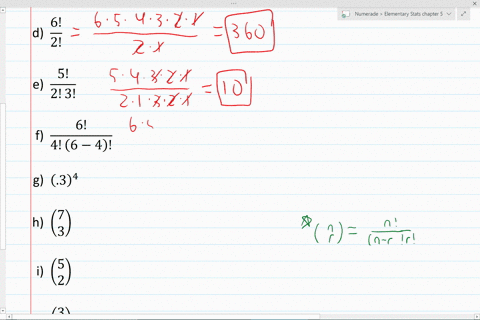 Numerade • Elementary Stats chapter 5
d) 6!/2! = 6·5·4·3·2·1/2·1 = 360
e) 5!/2! 3! 5·4·3·2·1/2·1·3·2·1 = 10
f) 6!/4! (6 − 4)! 6·
g) (.3)⁴
h) (7 3)
(n r) = n!/(n-r !r!
i) (5 2)